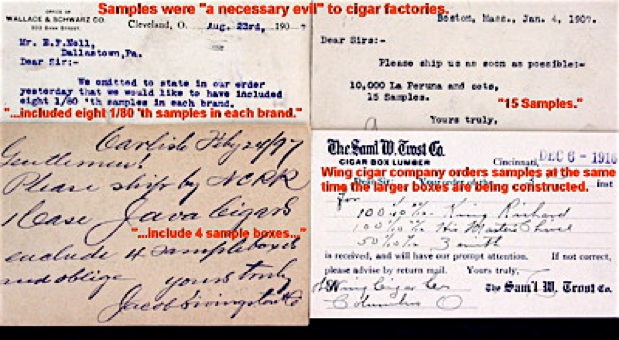 Samples were "a necessary evil" to cigar factories.
OFFICE OF
WALLACE & SCHWARZ CO.
Cleveland, O. Aug. 23rd, 190 7
Mr. E.F.Nell,
Dallastown,Pa.
Dear Sir:-
We omitted to state in our order
yesterday that we would like to have included
eight 1/80 'th samples in each brand.
"...included eight 1/80 'th samples in each brand."
Boston, Mass., Jan. 4, 1907.
Dear Sirs:-
Please ship us as soon as possible:-
10,000 La Peruna and cots,
15 Samples.
"15 Samples."
Yours truly,
Carlisle Feby 24/97
Gentlemen:
Please ship by NCRR
1 Case Java Cigars
"...include 4 sample boxes..."
include 4 sample boxes
and oblige yours truly
Jacob Livingston Co
The Sam'l W. Trost Co.
CIGAR BOX LUMBER
Cincinnati, DEC 6 - 1916
Wing cigar company orders samples at the same
time the larger boxes are being constructed.
inst
for
King Richard
His Masters Choice
Zenith
is received, and will have our prompt attention. If not correct,
please advise by return mail. Yours truly,
Wing Cigar Co
Columbus O
The Sam'l W. Trost Co.